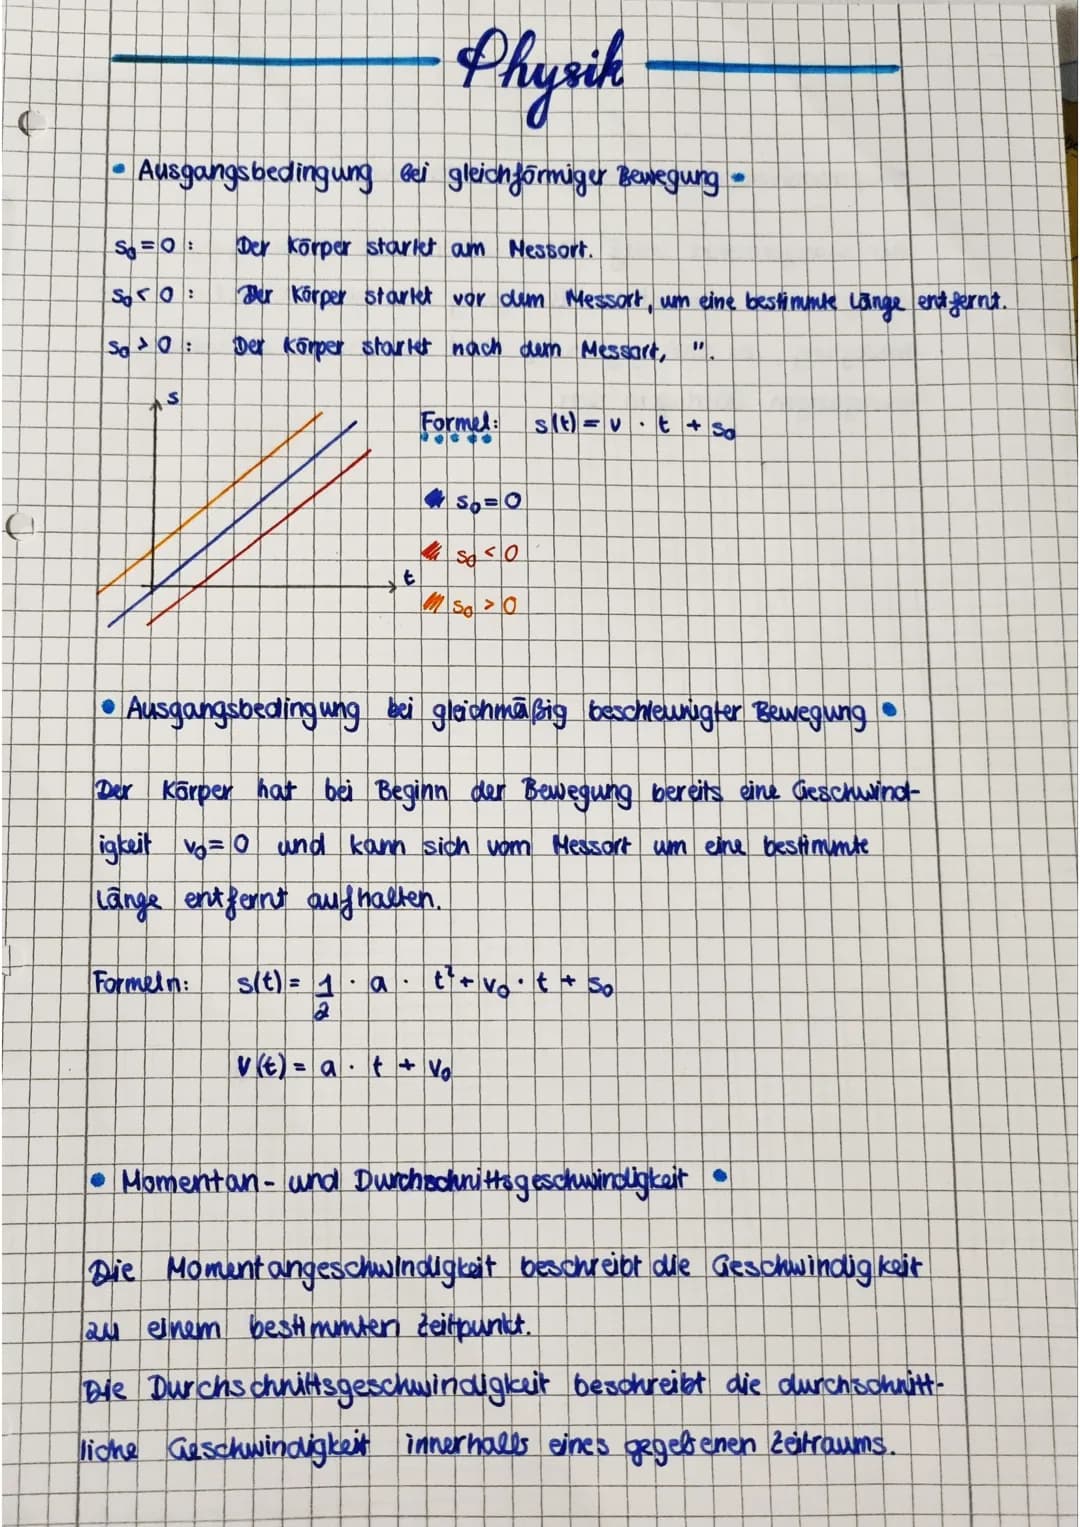 Physik
• Ausgangsbedingung bei gleichförmiger Bewegung •
s₀ = 0 : Der Körper startet am Messort.
s₀ < 0 : Der Körper startet vor dem Messort, um eine bestimmte Länge entfernt.
s₀ > 0 : Der Körper startet nach dem Messort, ".
s
Formel: s(t) = v · t + s₀
s₀ = 0
s₀ < 0
t
s₀ > 0
• Ausgangsbedingung bei gleichmäßig beschleunigter Bewegung •
Der Körper hat bei Beginn der Bewegung bereits eine Geschwind-
igkeit v₀ = 0 und kann sich vom Messort um eine bestimmte
Länge entfernt aufhalten.
Formeln: s(t) = 1/2 · a · t² + v₀ · t + s₀
v(t) = a · t + v₀
• Momentan- und Durchschnittsgeschwindigkeit •
Die Momentangeschwindigkeit beschreibt die Geschwindigkeit
zu einem bestimmten Zeitpunkt.
Die Durchschnittsgeschwindigkeit beschreibt die durchschnitt-
liche Geschwindigkeit innerhalb eines gegebenen Zeitraums.